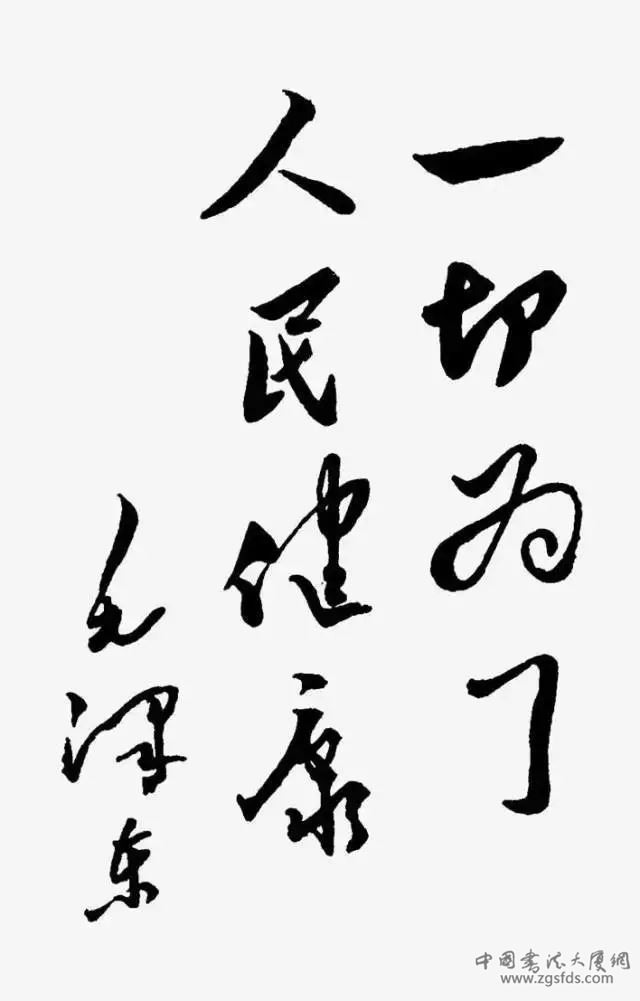 一切为了
人民健康
毛泽东
中国书法大厦網
www.zgsfds.com